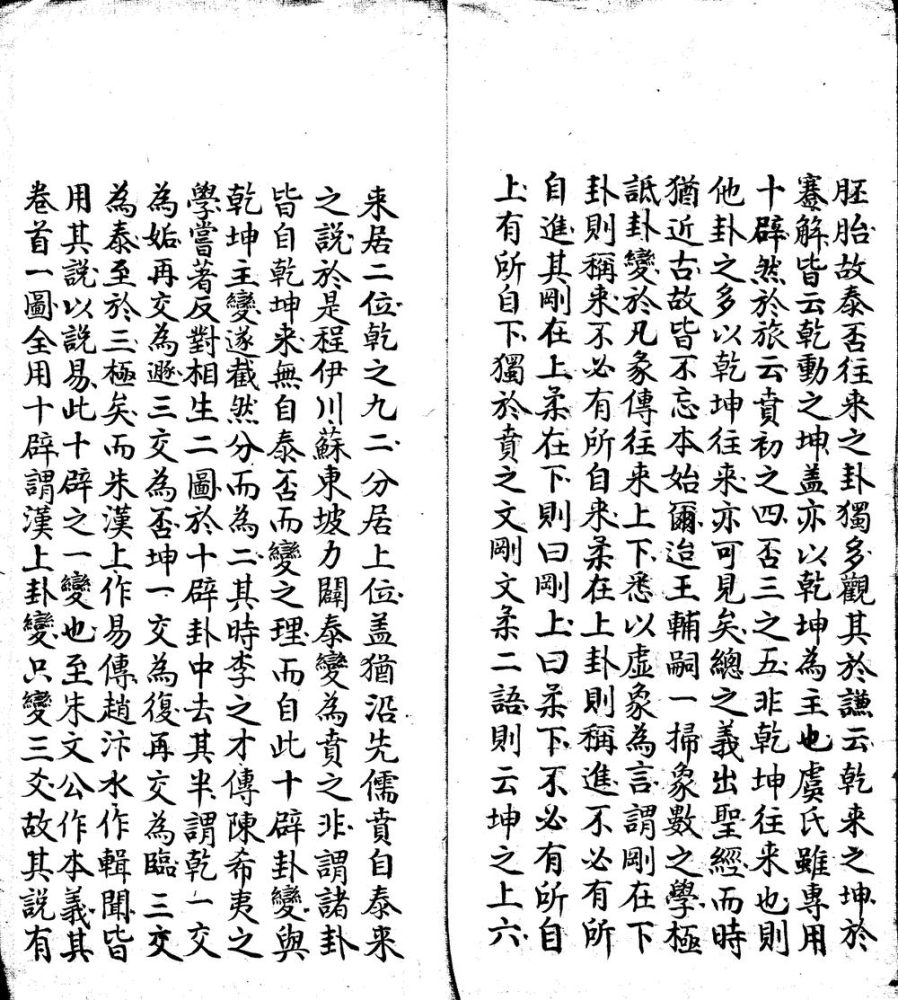 胚胎故泰否往来之卦獨多觀其於謙云乾来之坤於
蹇解皆云乾動之坤盖亦以乾坤為主也虞氏雖專用
十辟然於旅云賁初之四否三之五非乾坤往来也則
他卦之多以乾坤往来亦可見矣總之義出聖經而時
猶近古故皆不忘本始爾迨王輔嗣一掃象數之學極
詆卦變於凡彖傳往来上下悉以虚象為言謂剛在下
卦則稱来不必有所自来柔在上卦則稱進不必有所
自進其剛在上柔在下則曰剛上曰柔下不必有所自
上有所自下獨於賁之文剛文柔二語則云坤之上六
来居二位乾之九二分居上位盖猶沿先儒賁自泰来
之説於是程伊川蘇東坡力闢泰變為賁之非謂諸卦
皆自乾坤来無自泰否而變之理而自此十辟卦變與
乾坤主變遂截然分而為二其時李之才傳陳希夷之
學嘗著反對相生二圖於十辟卦中去其半謂乾一交
為姤再交為遯三交為否坤一交為復再交為臨三交
為泰至於三極矣而朱漢上作易傳趙汴水作輯聞皆
用其説以説易此十辟之一變也至朱文公作本義其
卷首一圖全用十辟謂漢上卦變只變三爻故其説有